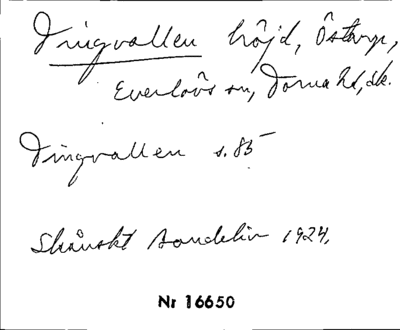 Dingvallen höjd, Östarp,
Everlövs sn, Torna hd, sk.
Dingvallen s. 85
Skånskt Bondeliv 1924,
Nr 16650